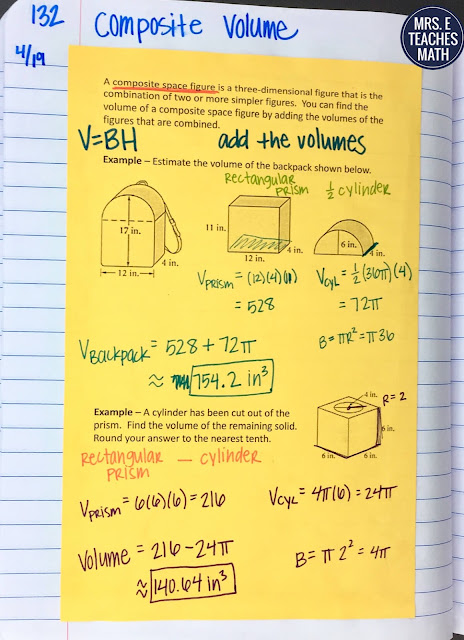 132
Composite Volume
MRS. E
TEACHES
MATH
4/19
A composite space figure is a three-dimensional figure that is the
combination of two or more simpler figures. You can find the
volume of a composite space figure by adding the volumes of the
figures that are combined.
V=BH add the volumes
Example – Estimate the volume of the backpack shown below.
Rectangular
Prism ½ cylinder
17 in.
12 in.
4 in.
11 in.
12 in.
4 in.
6 in.
4 in.
V PRISM = (12)(4)(11)
= 528
V CYL = ½(36π)(4)
= 72π
B = πr² = π36
V Backpack = 528 + 72π
≈ 754.2 in³
Example – A cylinder has been cut out of the
prism. Find the volume of the remaining solid.
Round your answer to the nearest tenth.
4 in.
R=2
6 in.
6 in.
6 in.
Rectangular – cylinder
Prism
V PRISM = 6(6)(6) = 216
V CYL = 4π(6) = 24π
Volume = 216 – 24π
≈ 140.64 in³
B = π2² = 4π